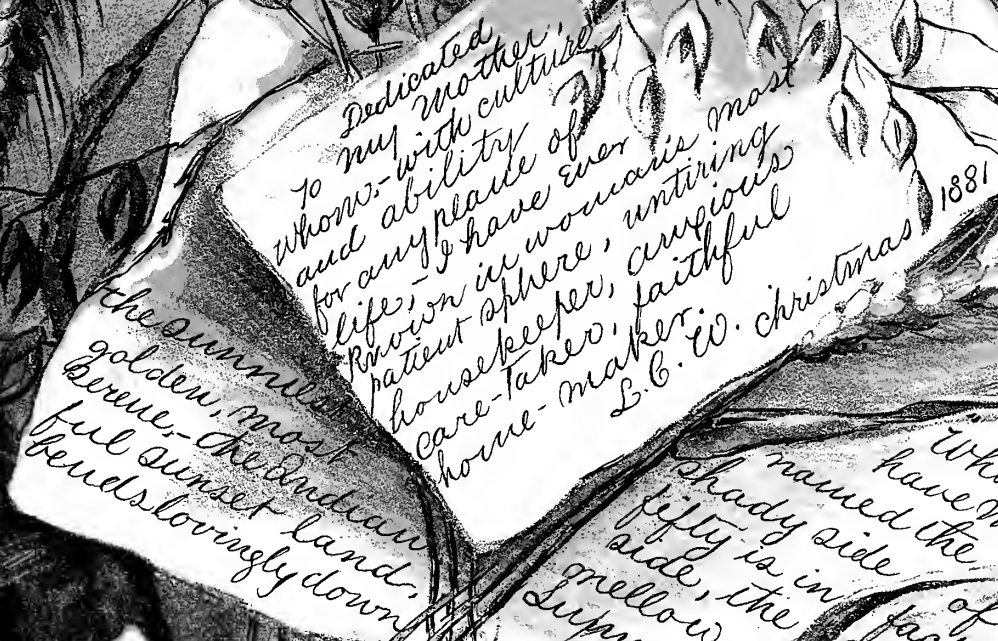 Dedicated
to my Mother,
whom,- with culture
and ability
for any plane of
life,- I have ever
known in woman's most
patient sphere, untiring
housekeeper, anxious
care-taker, faithful
home-maker.
L.C.W. Christmas 1881
the sunniest
golden, most
serene,- the Indian
ful sunset land,
bends lovingly down
have
named the
shady side of
fifty is in
side, the
mellow